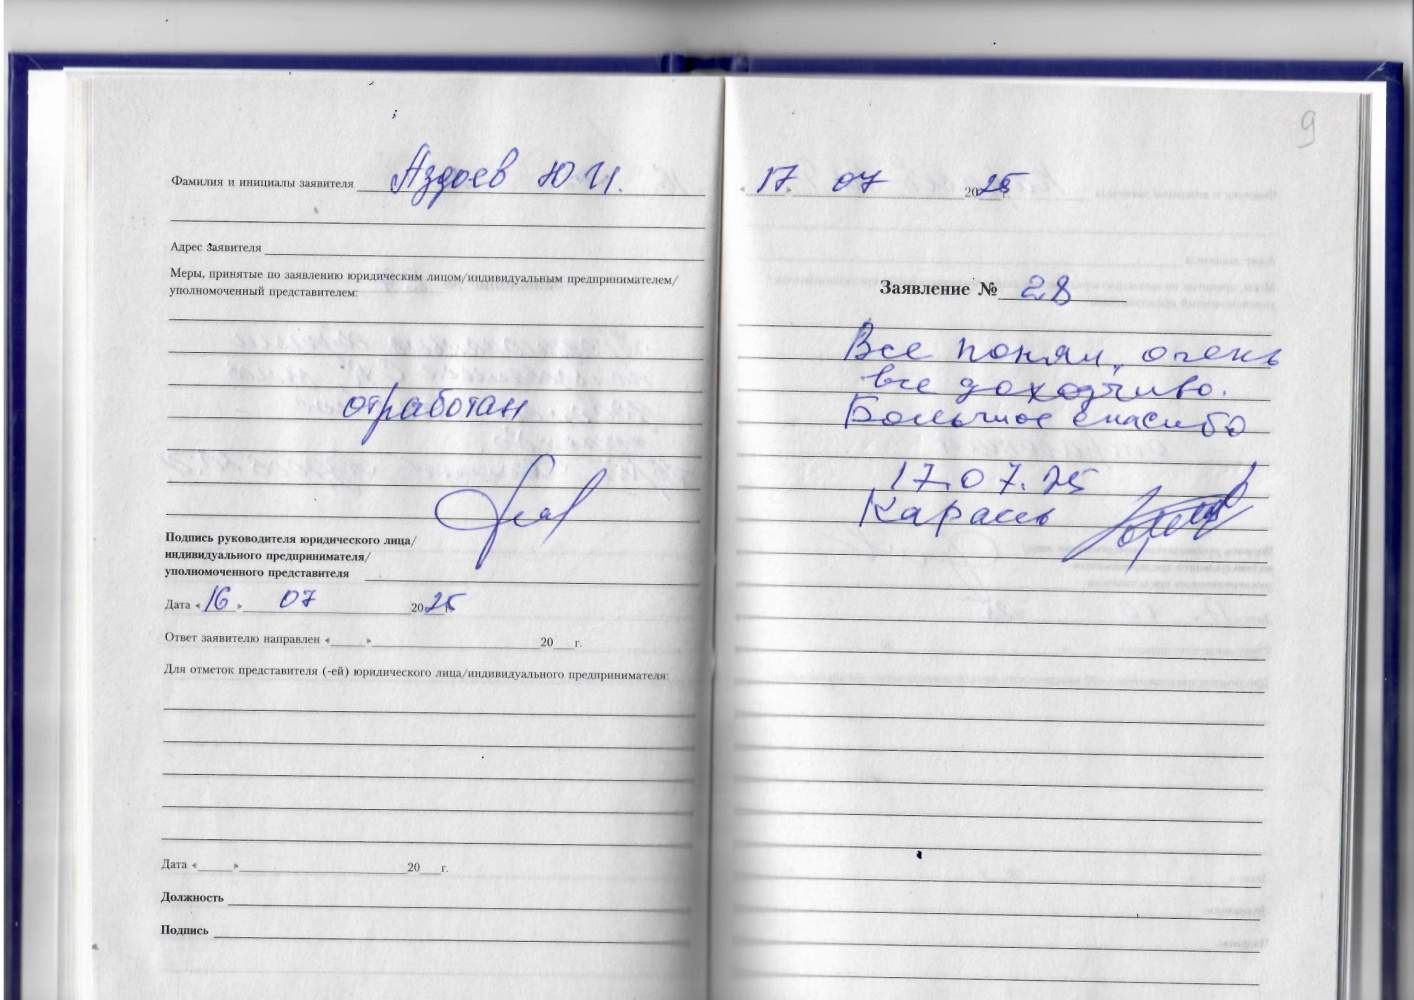 Фамилия и инициалы заявителя Аздоев Ю И.
Адрес заявителя
Меры, принятые по заявлению юридическим лицом/индивидуальным предпринимателем/
уполномоченный представителем:
отработан
Подпись руководителя юридического лица/
индивидуального предпринимателя/
уполномоченного представителя
Дата «16» 07 2025 г.
Ответ заявителю направлен «____»____ 20__г.
Для отметок представителя (-ей) юридического лица/индивидуального предпринимателя:
Дата «____»____ 20__г.
Должность
Подпись
9
«17» 07 2025 г.
Заявление № 28
Все понял, очень
все доходчиво.
Большое спасибо
17.07.25
Карась